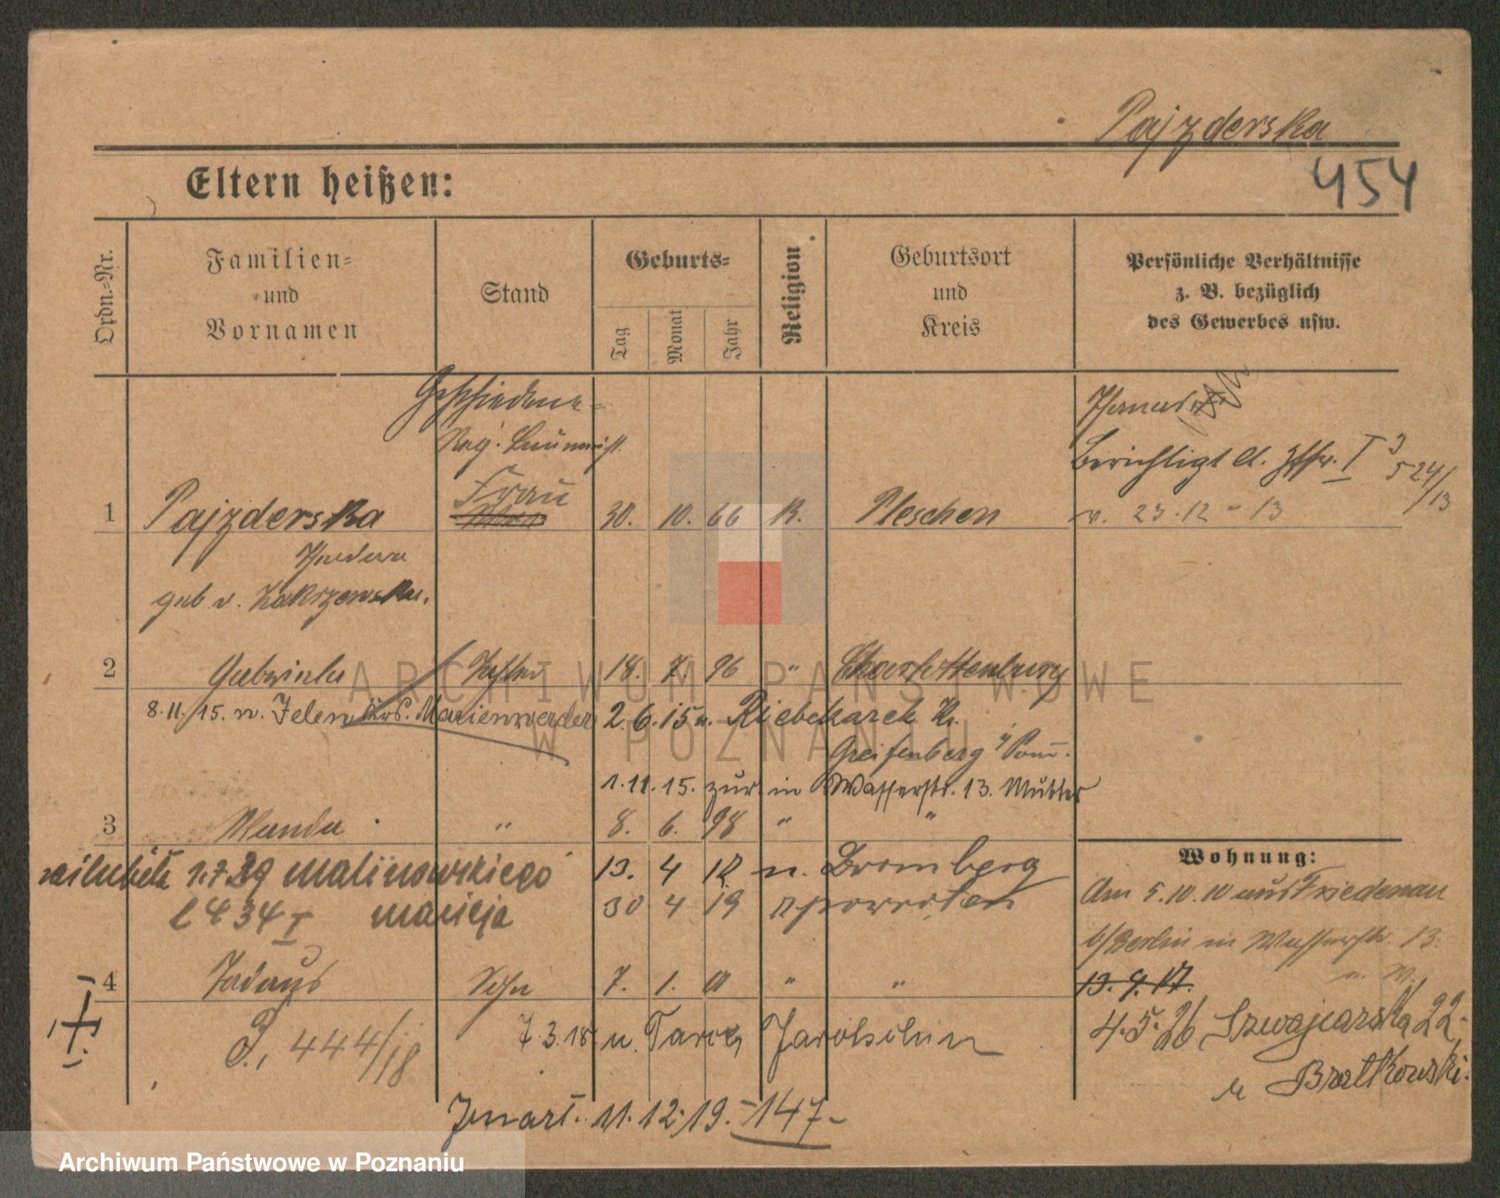 Pajzderska
454
Eltern heißen:
Ordn.-Nr.
Familien-
und
Vornamen
Stand
Geburts-
Tag
Monat
Jahr
Religion
Geburtsort
und
Kreis
Persönliche Verhältnisse
z. B. bezüglich
des Gewerbes usw.
Geschiedene
Reg. Baumeist.
Berichtigt
I 3
524/13
Frau
1 Pajzderska 30. 10. 66 k. Pleschen
v. 23.12-13
geb v. Zakrzewska.
2 Gabriele Tochter 18. 7 96 " Charlottenburg
8.11.15. n. Jelen Krs. Marienwerder 2.6.15 n. Riebekardt K.
Greifenberg i/Pom.
1.11.15. zur in Wasserstr. 13. Mutter
3 Wanda " 8. 6. 98 " "
1.7.29 Malinowskiego 13. 4 12 n. Bromberg
434 I 30 4 19
4 Sohn 7. 1. " "
I
I
P. 444/18
7 3.18 n. Jarotschin
Wohnung:
Am 5.10.10 aus Friedenau
b/Berlin in Wasserstr. 13.
13. 9. 17.
4.5.26 Szwajcarska 22
u Bratkowski.
11.12.19. - 147-
ARCHIWUM PAŃSTWOWE
W POZNANIU
Archiwum Państwowe w Poznaniu